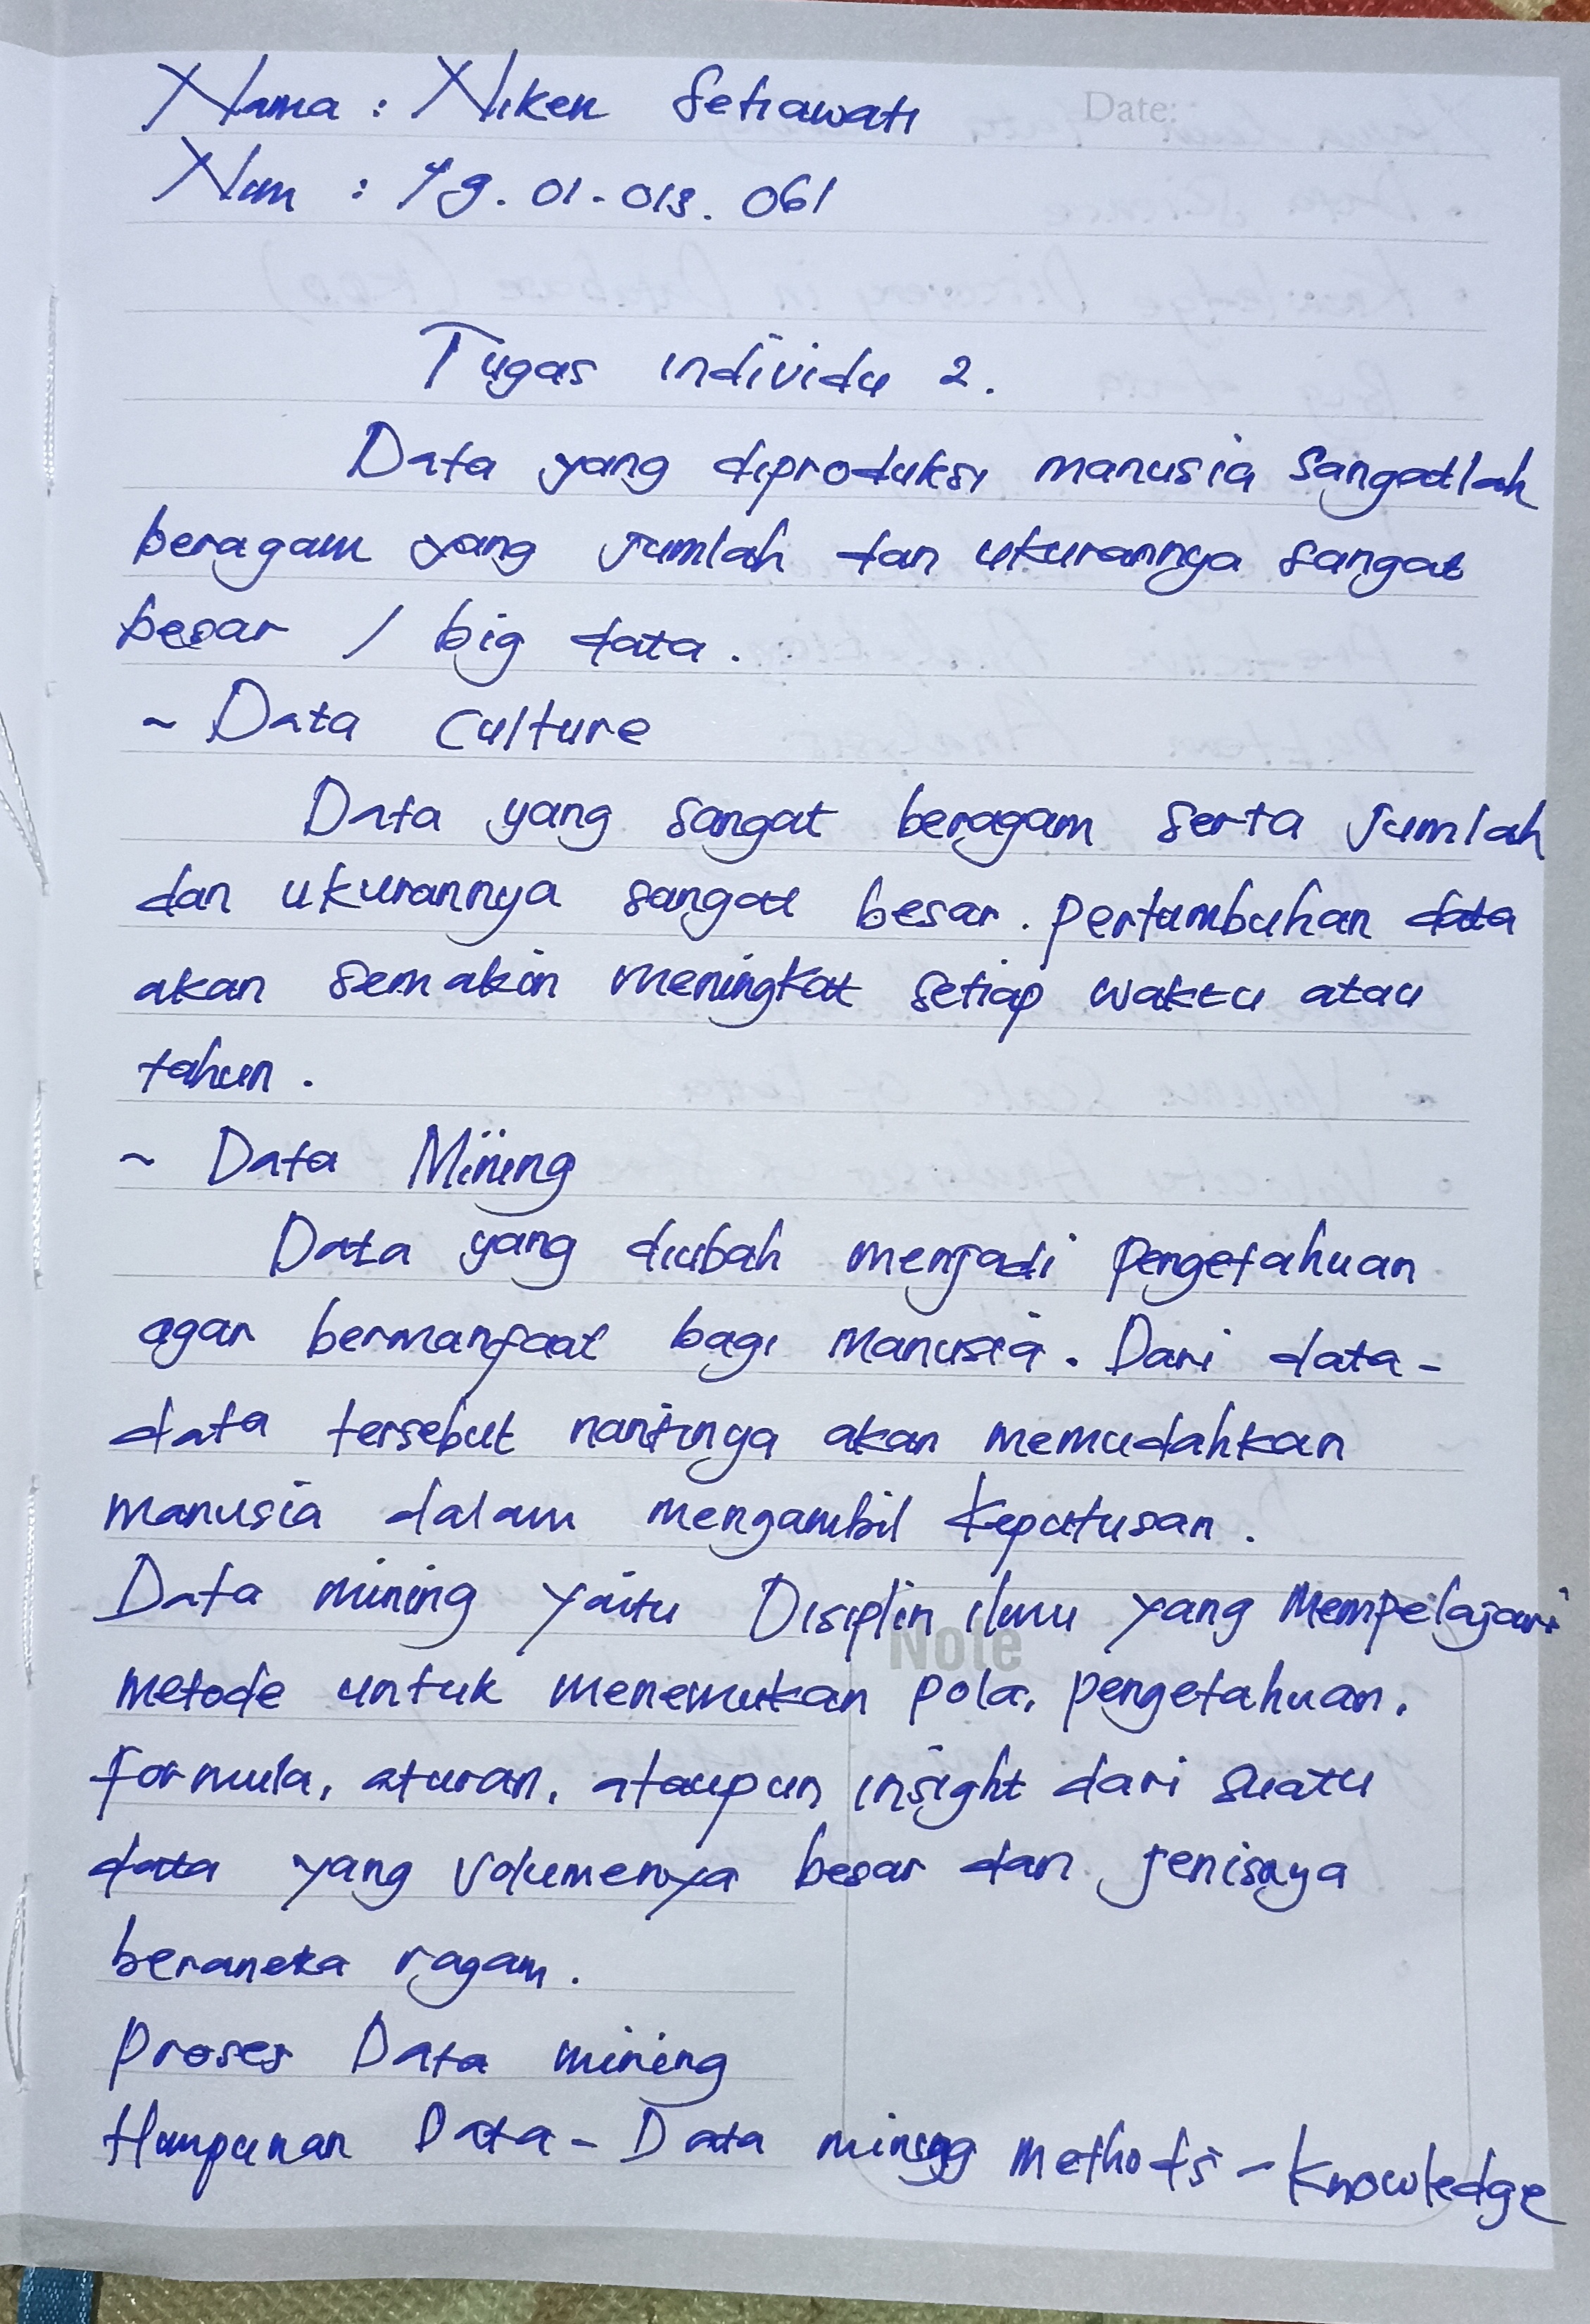 Date:
Nama : Niken Setiawati
Nim : 19.01.013.061
Tugas individu 2.
Data yang diproduksi manusia sangatlah
beragam yang jumlah dan ukurannya sangat
besar / big data.
~ Data Culture
Data yang sangat beragam serta jumlah
dan ukurannya sangat besar. pertumbuhan data
akan semakin meningkat setiap waktu atau
tahun.
~ Data Mining
Data yang diubah menjadi pengetahuan
agar bermanfaat bagi manusia. Dari data-
data tersebut nantinya akan memudahkan
manusia dalam mengambil keputusan.
Data mining yaitu Disiplin ilmu yang Mempelajari
Note
metode untuk menemukan pola, pengetahuan,
formula, aturan, ataupun insight dari suatu
data yang volumenya besar dan jenisnya
beraneka ragam.
Proses Data mining
Himpunan Data - Data mining methods - Knowledge